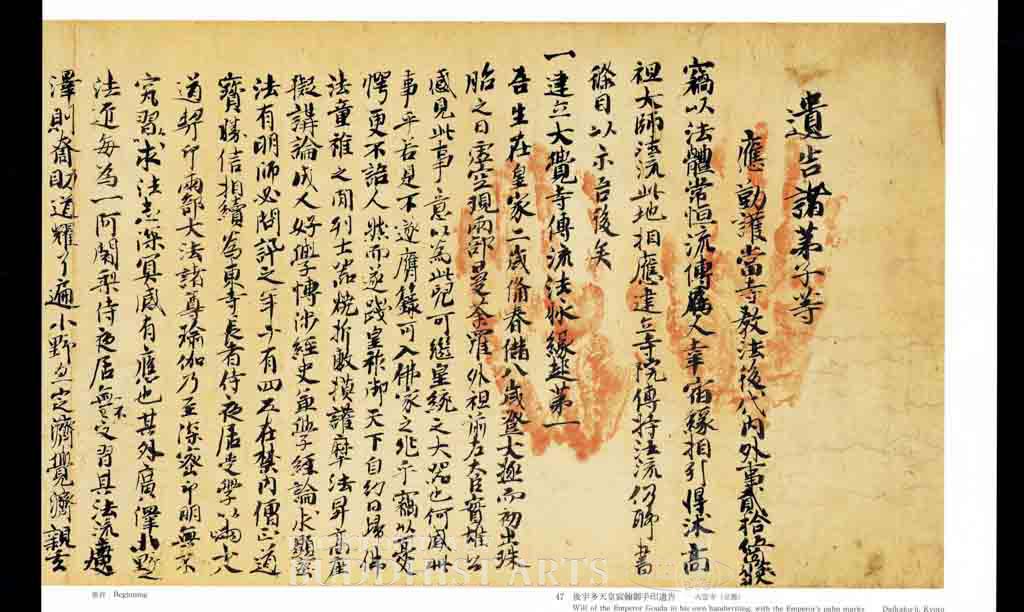 遺告諸弟子等
應勤護當寺教法後代内外事貳拾箇條
竊以法體常恒流傳属人幸宿縁相引得沐高
祖大師法流此地相應建立寺院傳持法流仍聊書
條目以示後矣
一建立大覺寺傳流法脉縁起第一
吾生在皇家二歳備春儲八歳登大而初出
胎之日虚空現兩部曼荼羅外祖前左大臣實雄公
感見此事意以為此児可継皇統之大器也何感此
事乎若是不遂膺籙可入佛家之兆乎竊以憂
愕更不語人然而遂践皇祚御天下自幼日帰佛
法童稚之間列土器燒折敷擬護摩法昇高座
擬講論成人好學博渉經史並學經論求顯密
法有明師必問訊之年有四五在禁内僧正道
寶勝信相續為東寺長者侍夜居受學以兩大
道契印兩部大法諸尊瑜伽乃至深密印明無不
究習求法志深冥感有應也其外廣澤小野之
法近毎為一阿闍梨侍夜居無不受習其法流廣
澤則斎助道耀了遍小野定濟覺濟親玄
巻首 Beginning
47 後宇多天皇宸翰御手印遺告 大覚寺（京都）
Will of the Emperor Gouda in his own handwriting, with the Emperor's palm marks Daikakuji, Kyoto
BUDDHIST ARTS